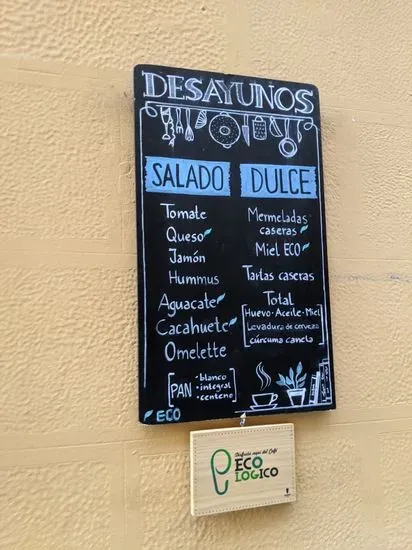 DESAYUNOS
SALADO
Tomate
Queso
Jamón
Hummus
Aguacate
Cacahuete
Omelette
PAN
• blanco
• integral
• centeno
ECO
DULCE
Mermeladas
caseras
Miel ECO
Tartas caseras
Total
Huevo-Aceite-Miel
Levadura de cerveza
cúrcuma canela
Disfrute aquí del Café
ECO
LÓGICO